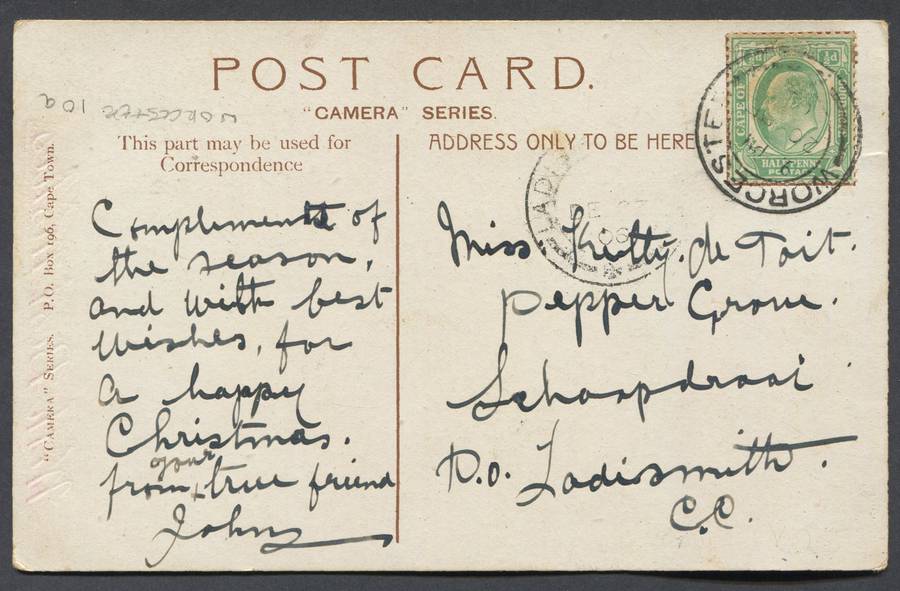 POST CARD.
"CAMERA" SERIES.
This part may be used for
Correspondence
ADDRESS ONLY TO BE HERE
"CAMERA" SERIES. P.O. Box 196, Cape Town.
WORCESTER 10a
Compliments of
the season,
and with best
wishes, for
a happy
Christmas.
from your true friend
John
Miss Kitty. de Toit.
Pepper Grove.
Schoapdraai
P.O. Ladismith.
C.C.
CAPE OF
½d
HALFPENNY
POSTAGE
WORCESTER
PM
LADI
DE 23
06